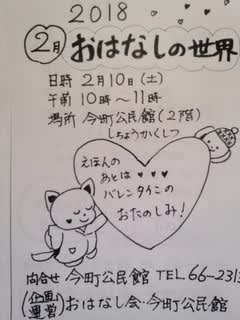 2018
2月 おはなしの世界
日時 2月10日(土)
午前 10時～11時
場所 今町公民館(2階)
しちょうかくしつ
えほんの
あとは ♥♥♥
バレンタインの
おたのしみ!
問合せ 今町公民館 TEL 66-2313
(企画運営) おはなし会・今町公民館